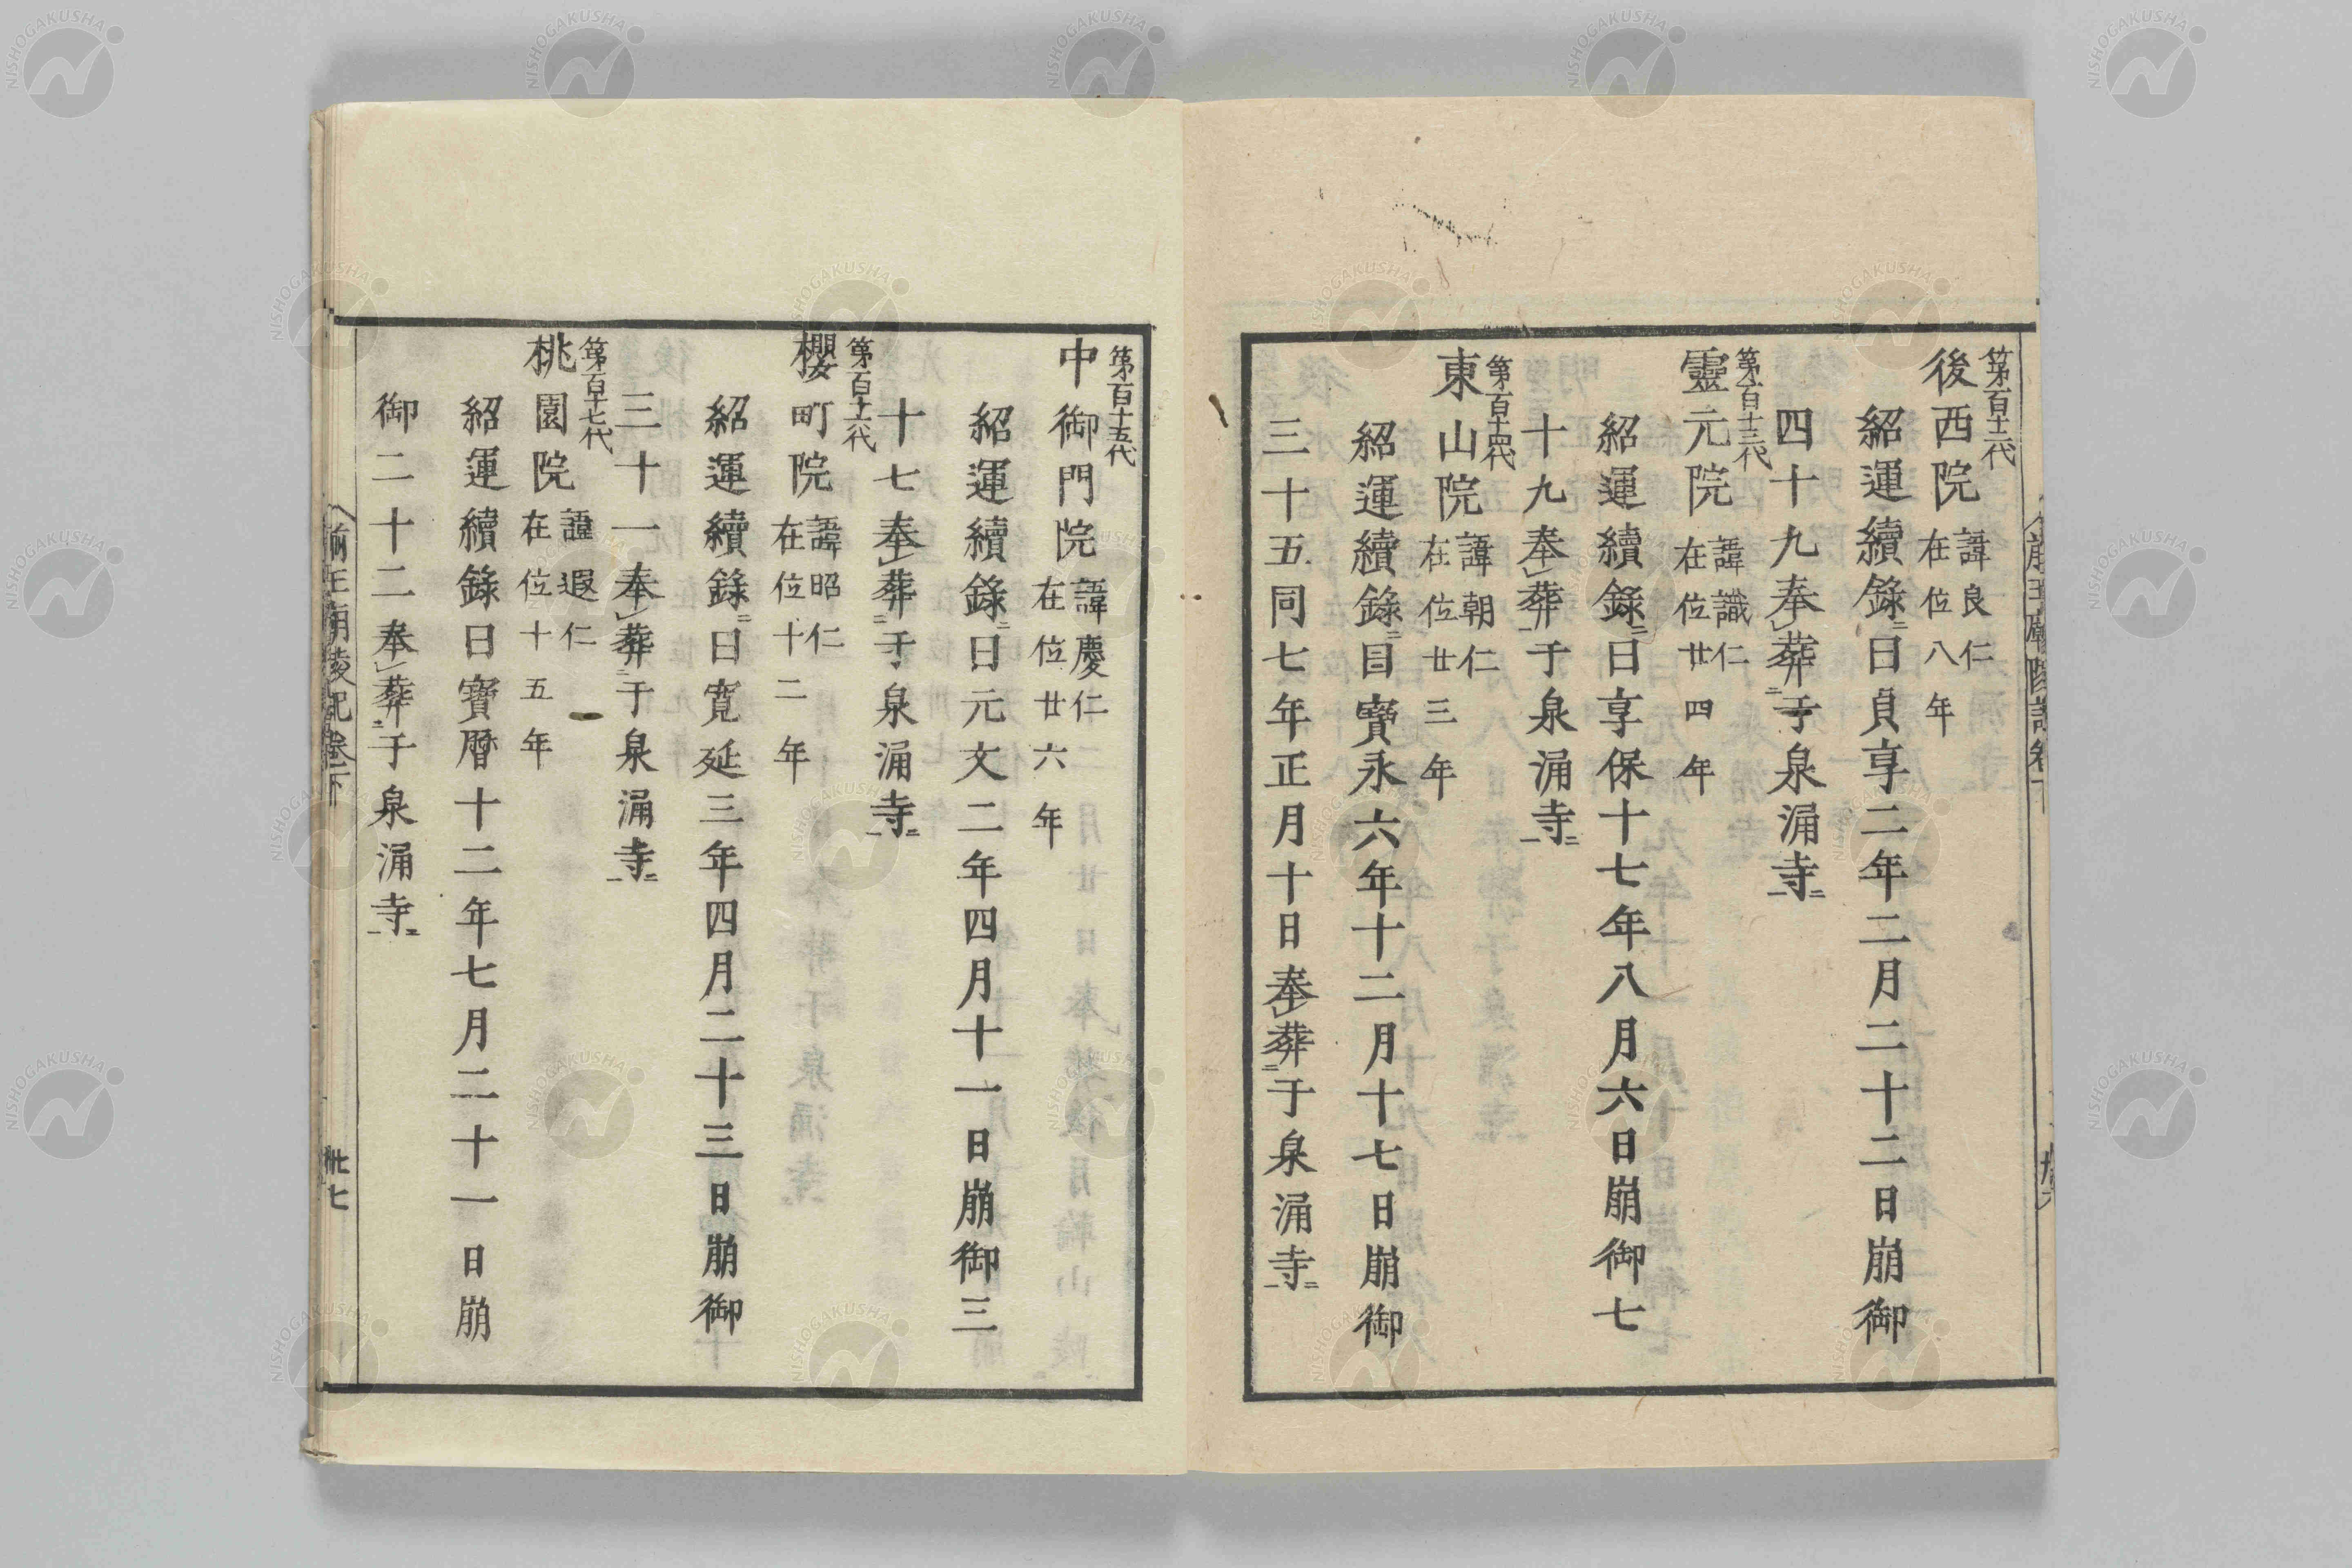 第百十二代
後西院 諱良仁 在位八年
紹運續錄曰貞享二年二月二十二日崩御
四十九奉葬于泉涌寺
第百十三代
靈元院 諱識仁 在位廿四年
紹運續錄曰享保十七年八月六日崩御七
十九奉葬于泉涌寺
第百十四代
東山院 諱朝仁 在位廿三年
紹運續錄曰寶永六年十二月十七日崩御
三十五同七年正月十日奉葬于泉涌寺
第百十五代
中御門院 諱慶仁 在位廿六年
紹運續錄曰元文二年四月十一日崩御三
十七奉葬于泉涌寺
第百十六代
櫻町院 諱昭仁 在位十二年
紹運續錄曰寬延三年四月二十三日崩御
三十一奉葬于泉涌寺
第百十七代
桃園院 諱遐仁 在位十五年
紹運續錄曰寶曆十二年七月二十一日崩
御二十二奉葬于泉涌寺
前王廟陵記卷下
卅七
NISHOGAKUSHA